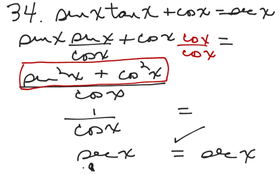 34. sinx tanx + cosx = secx
sinx sinx/cosx + cosx cosx/cosx =
sin²x + cos²x / cosx
1/cosx =
secx = secx ✓